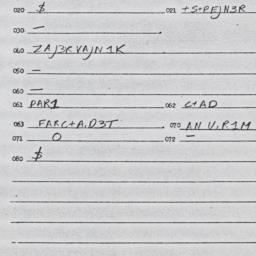 020 $ 021 +S+PEJN3R
030 —
040 ZAJ3RVAJN1K
050 —
060 —
061 PAR1 062 C+AD
063 FARC+A.D3T 070 AN V.R1M
071 O 072 —
080 $